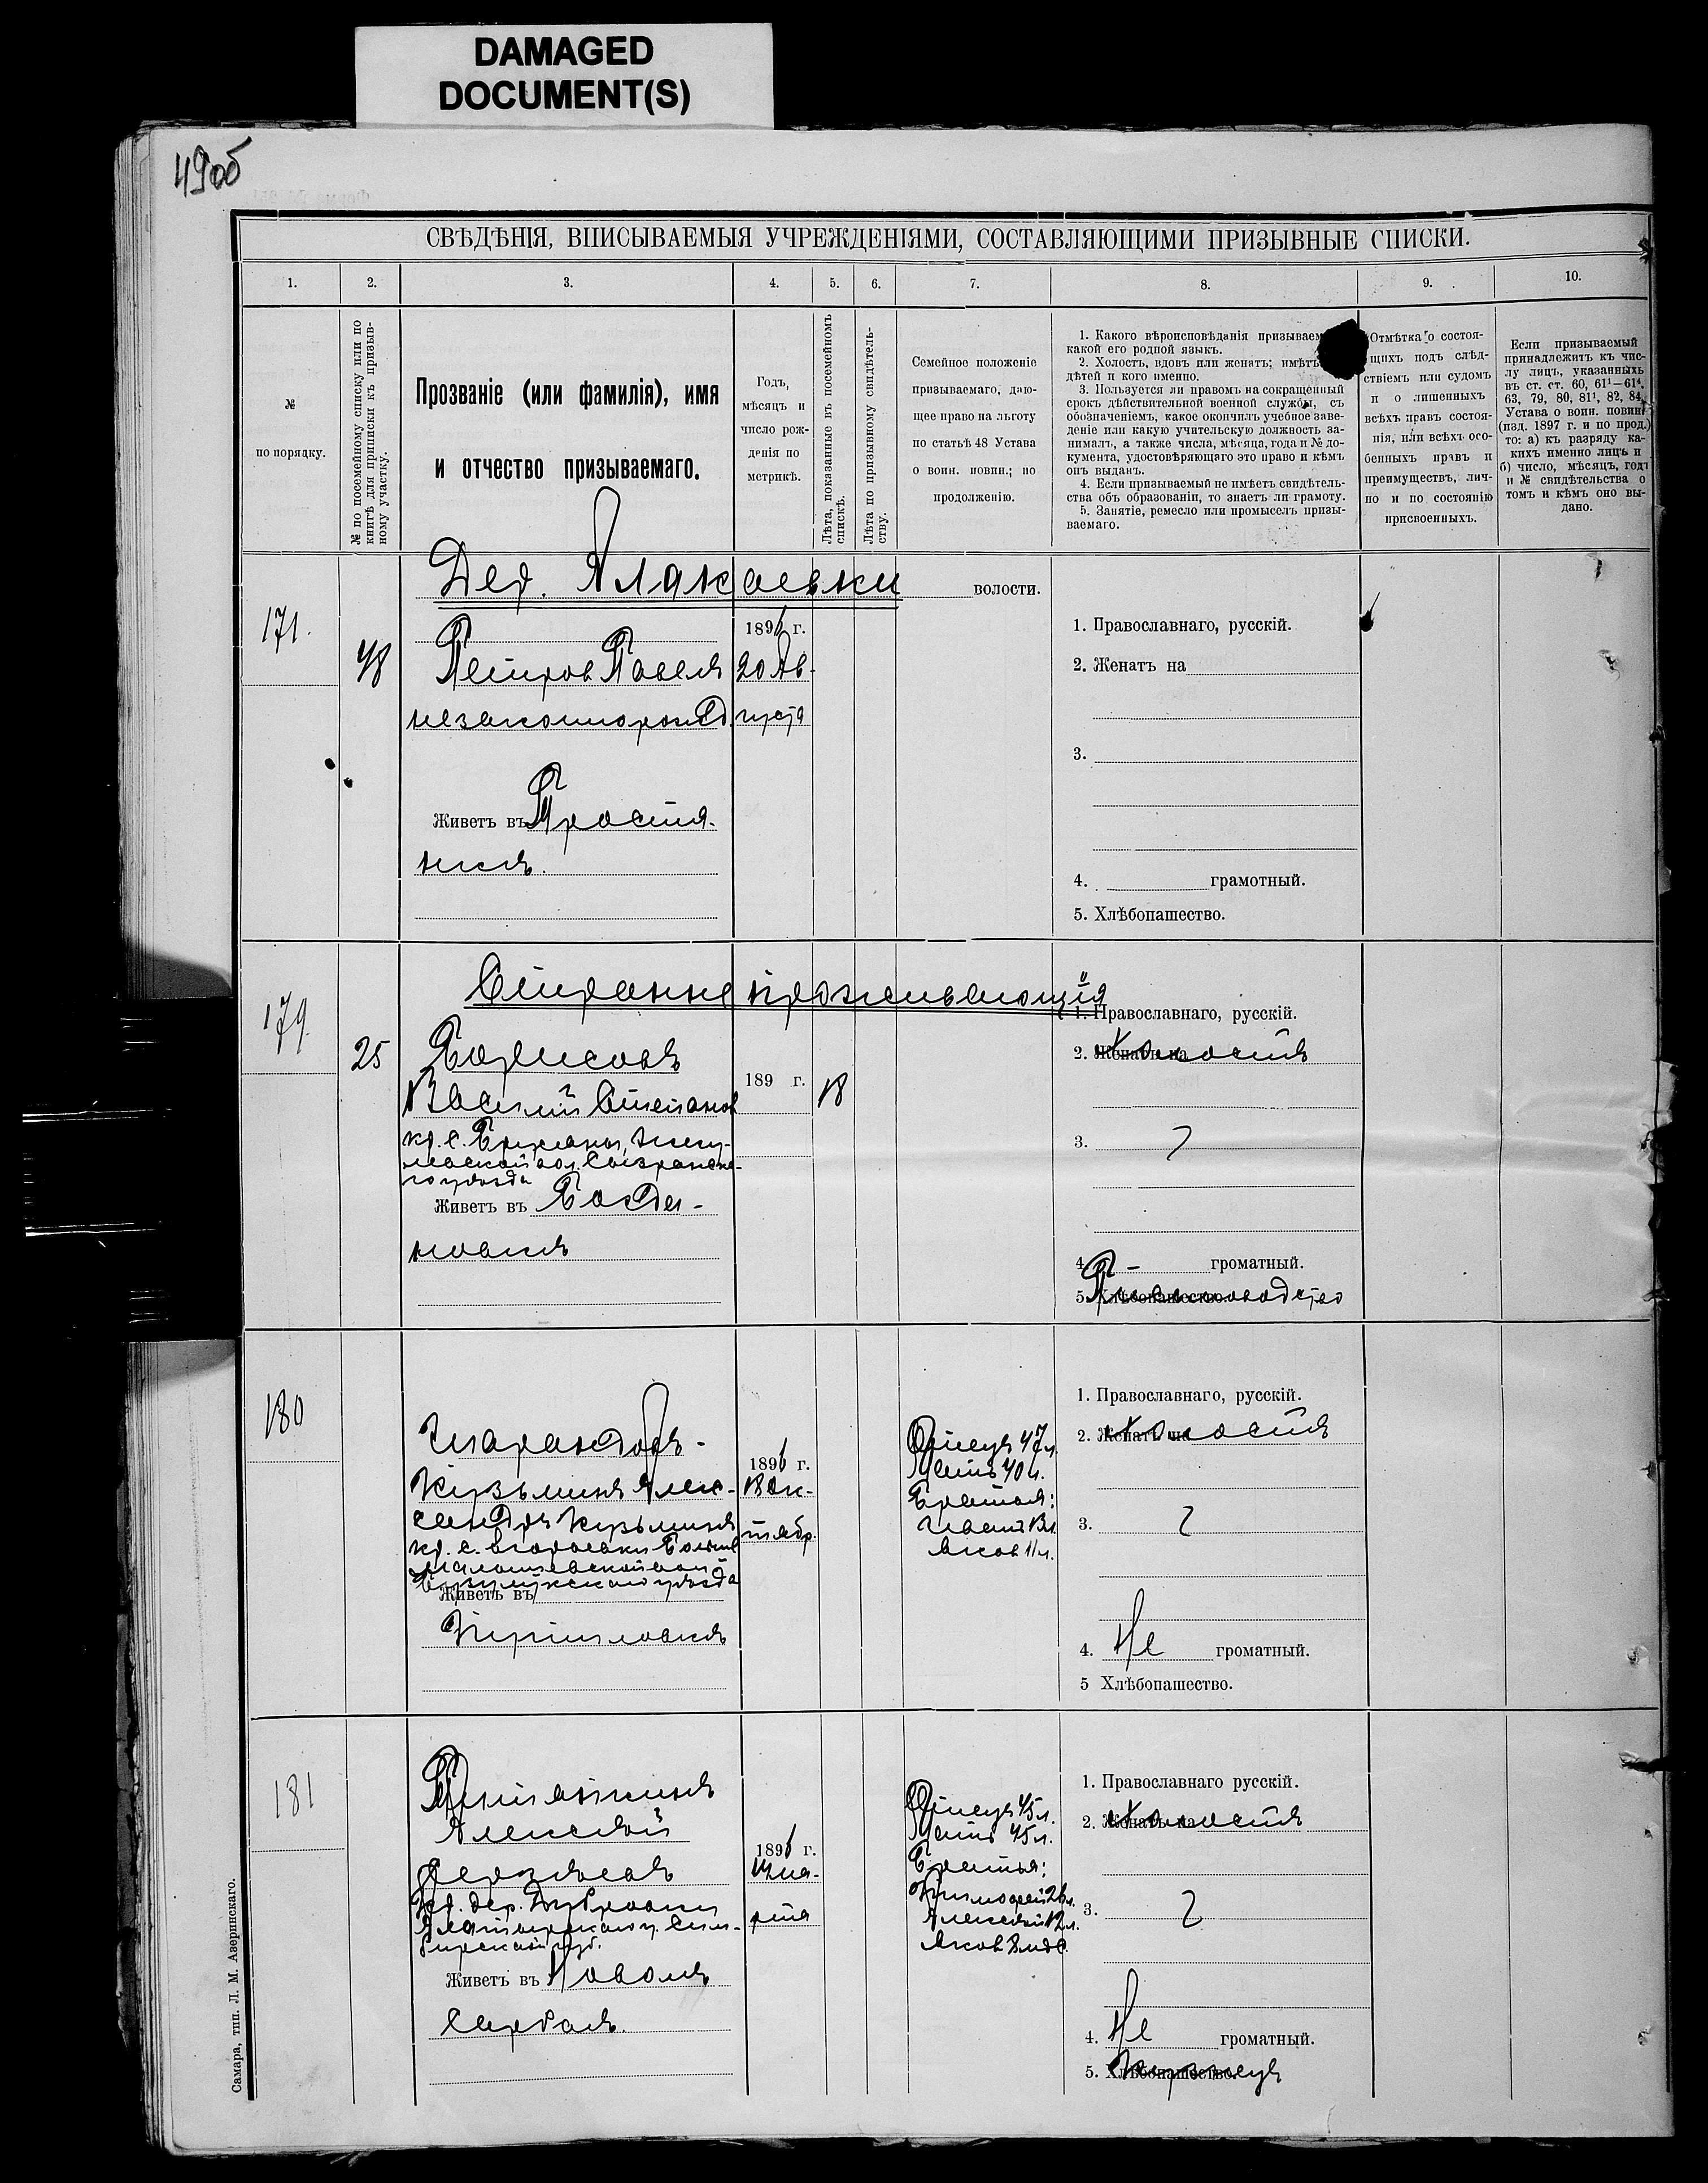 DAMAGED
DOCUMENT(S)
49об
СВѢДѢНІЯ, ВПИСЫВАЕМЫЯ УЧРЕЖДЕНІЯМИ, СОСТАВЛЯЮЩИМИ ПРИЗЫВНЫЕ СПИСКИ.
1. 2. 3. 4. 5. 6. 7. 8. 9. 10.
№
по порядку.
№ по посемейному списку или по
книгѣ для приписки къ призыв-
ному участку.
Прозваніе (или фамилія), имя
и отчество призываемаго.
Годъ,
мѣсяцъ и
число рож-
денія по
метрикѣ.
Лѣта, показанные въ посемейномъ
спискѣ.
Лѣта по призывному свидѣтель-
ству.
Семейное положеніе
призываемаго, даю-
щее право на льготу
по статьѣ 48 Устава
о воин. повин.; по
продолженію.
1. Какого вѣроисповѣданія призываем
какой его родной языкъ.
2. Холостъ, вдовъ или женатъ; имѣтъ
дѣтей и кого именно.
3. Пользуется ли правомъ на сокращенный
срокъ дѣйствительной военной службы, съ
обозначеніемъ, какое окончилъ учебное заве-
деніе или какую учительскую должность за-
нималъ, а также числа, мѣсяца, года и № до-
кумента, удостовѣряющаго это право и кѣмъ
онъ выданъ.
4. Если призываемый не имѣетъ свидѣтель-
ства объ образованіи, то знаетъ ли грамоту.
5. Занятіе, ремесло или промыселъ призы-
ваемаго.
Отмѣтка о состоя-
щихъ подъ слѣд-
ствіемъ или судомъ
и о лишенныхъ
всѣхъ правъ состоя-
нія, или всѣхъ осо-
бенныхъ правъ и
преимуществъ, лич-
но и по состоянію
присвоенныхъ.
Если призываемый
принадлежитъ къ чис-
лу лицъ, указанныхъ
въ ст. ст. 60, 61¹—61⁴,
63, 79, 80, 81¹, 82, 84,
Устава о воин. повин.
(изд. 1897 г. и по прод.)
то: а) къ разряду ка-
кихъ именно лицъ и
б) число, мѣсяцъ, годъ
и № свидѣтельства о
томъ и кѣмъ оно вы-
дано.
Дер. Алакаевки волости.
171.
48
Петров Павелъ
незаконнорожд.
1896 г.
20 Ав-
густа
Живетъ въ Простян-
кѣ.
1. Православнаго, русскій.
2. Женатъ на
3.
4. грамотный.
5. Хлѣбопашество.
Странно проживающія
179
25
Борисовъ
Василій Степанов
189 г.
18
Сызранска-
го уѣзда
Живетъ въ Богда-
новкѣ
1. Православнаго, русскій.
2. Женатъ на холостъ
3.
4. громатный.
5. Хлѣбопашество
180
Кузьминъ Алек-
сандръ Кузьминъ
Бузулукскаго уѣзда
Живетъ въ
Кириловкѣ
1896 г.
18 Ок-
тябр.
Отецъ 47 л.
Мать 40 л.
Братья:
Яков 11 л.
1. Православнаго, русскій.
2. Женатъ на холостъ
3.
4. Не громатный.
5 Хлѣбопашество.
181
Алексѣй
кр. дер. Дубровки
Алатырскаго у. Сим-
бирской губ.
Живетъ въ Новомъ
Сарбаѣ.
1896 г.
12 ма-
рта
Отецъ 45 л.
Мать 45 л.
Братья:
Тимофей
Алексѣй 12 л.
Яков 8 мѣс.
1. Православнаго русскій.
2. Женатъ на холостъ
3.
4. Не громатный.
5. Хлѣбопашество. Кузнецъ
Самара, тип. Л. М. Азеринскаго.